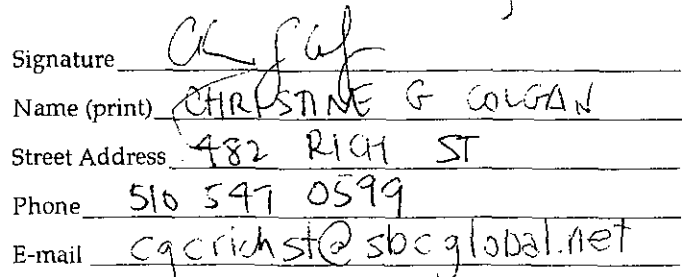 Signature
Name (print) CHRISTINE G COLGAN
Street Address 482 RICH ST
Phone 510 547 0599
E-mail cgcrichst@sbcglobal.net